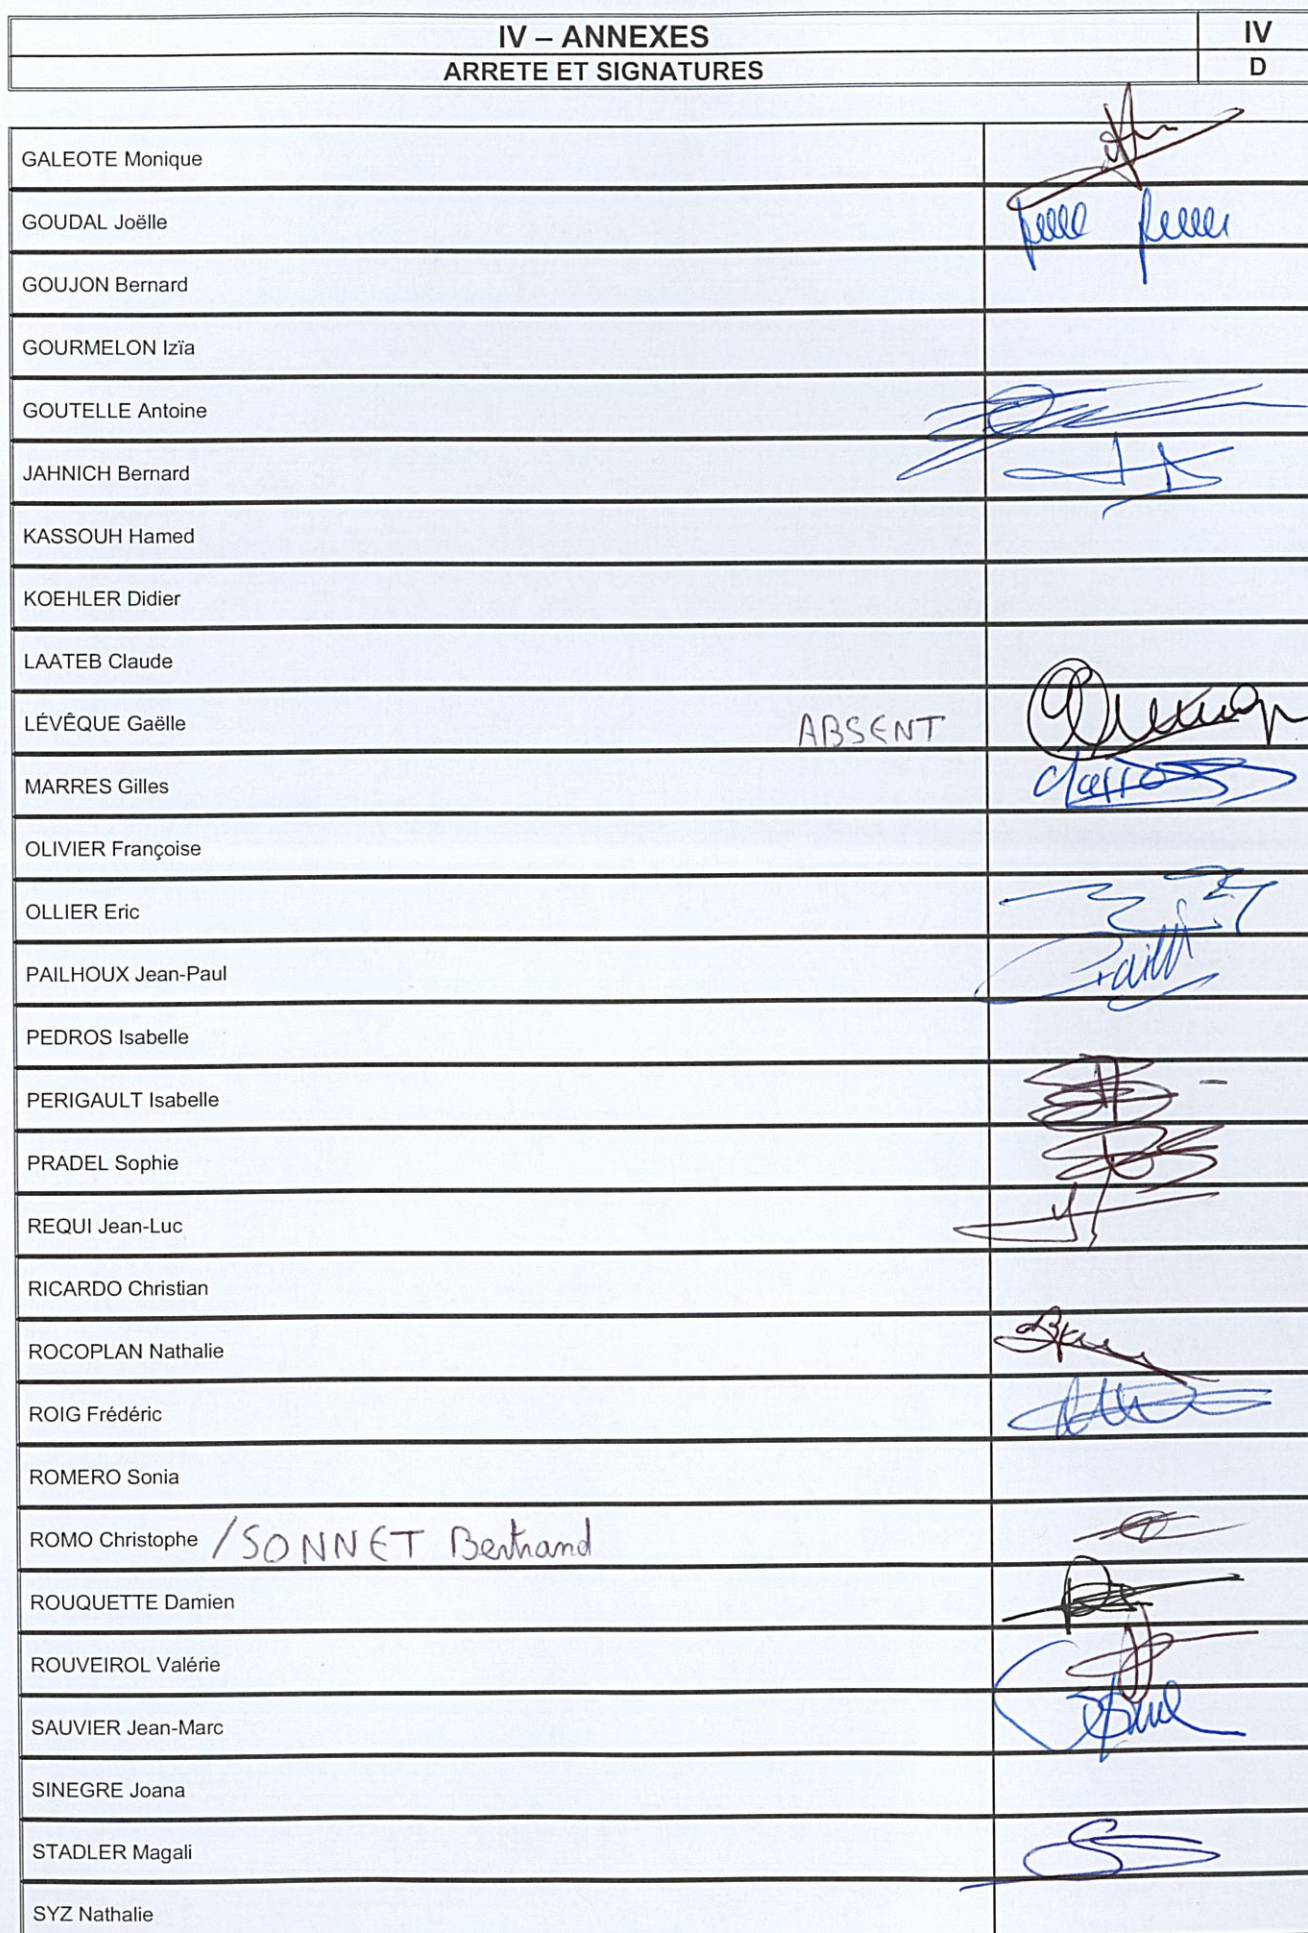 IV – ANNEXES
IV
ARRETE ET SIGNATURES
D
GALEOTE Monique
GOUDAL Joëlle
GOUJON Bernard
GOURMELON Izïa
GOUTELLE Antoine
JAHNICH Bernard
KASSOUH Hamed
KOEHLER Didier
LAATEB Claude
LÉVÊQUE Gaëlle ABSENT
MARRES Gilles
OLIVIER Françoise
OLLIER Eric
PAILHOUX Jean-Paul
PEDROS Isabelle
PERIGAULT Isabelle
PRADEL Sophie
REQUI Jean-Luc
RICARDO Christian
ROCOPLAN Nathalie
ROIG Frédéric
ROMERO Sonia
ROMO Christophe /SONNET Bertrand
ROUQUETTE Damien
ROUVEIROL Valérie
SAUVIER Jean-Marc
SINEGRE Joana
STADLER Magali
SYZ Nathalie